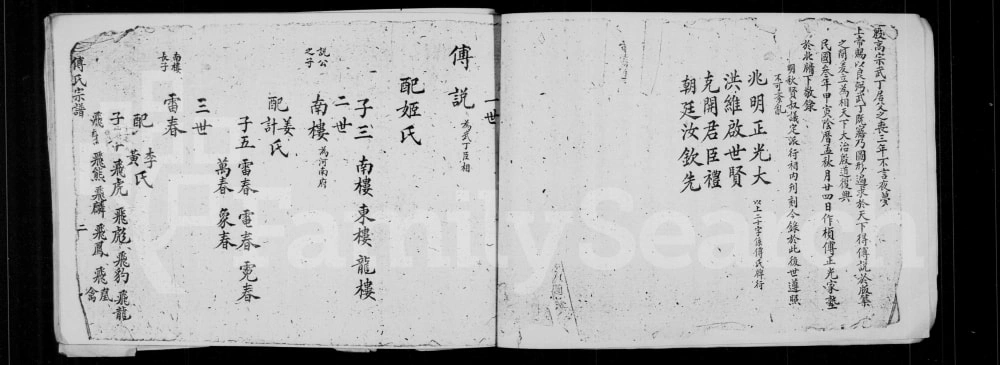 殷高宗武丁居父之喪三年不言夜夢
上帝賜以良弼武丁既寤乃圖形遍求於天下得傅說於版築
之間爰立為相天下大治殷道復興
民國叁年甲寅陰曆孟秋月廿四日作楨傅正光家塾
於北牖下敬錄
明秋賢叔議定派行相內列刻今錄於此後世遵照
不可紊亂
兆明正光大
洪維啟世賢
克開君臣禮
朝廷汝欽先
以上二十字係傅氏牌行
一世
傅說 為武丁臣相
配姬氏
子三 南樓 東樓 龍樓
二世
說公之子
南樓 為河南府
配姜計氏
子五 雷春 電春 霓春
萬春 象春
三世
南樓長子
雷春
配李黃氏
子 飛虎 飛彪 飛豹 飛龍
飛熊 飛麟 飛鳳 飛凰 飛禽
傅氏宗譜
二
FamilySearch